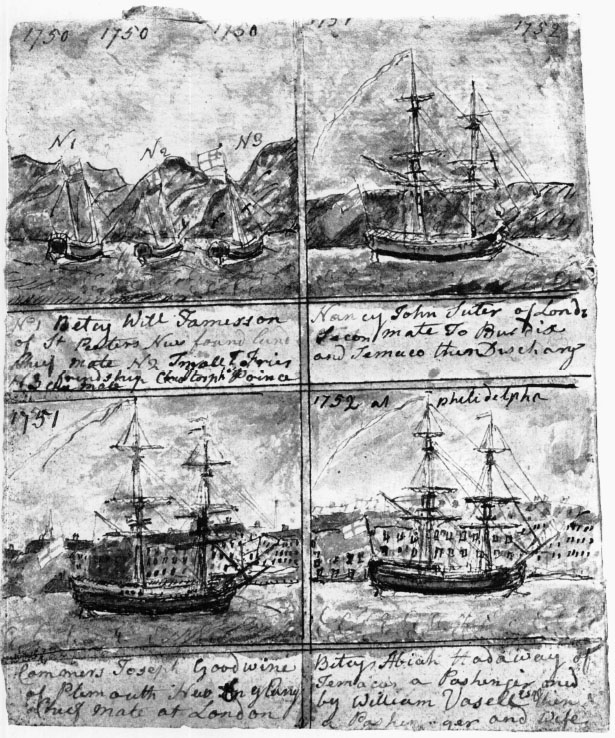 1750 1750 1750
N1 N2 N3
No 1 Betcy Will Jamesson
of St Peeters New found Land
Chief mate N2
N3 friendship Christorphr Prince
1751 1752
Nancy John Suter of Lond
Secon mate To
and Jemaco then Discharg
1751
Commers Joseph Goodwine
of Plemouth New Ingland
Chief mate at London
1752 at philidelpha
Betcy Abiah Hadaway of
Jemacus a Pashenger and
by William Vasell then
a Pashenger and Wife